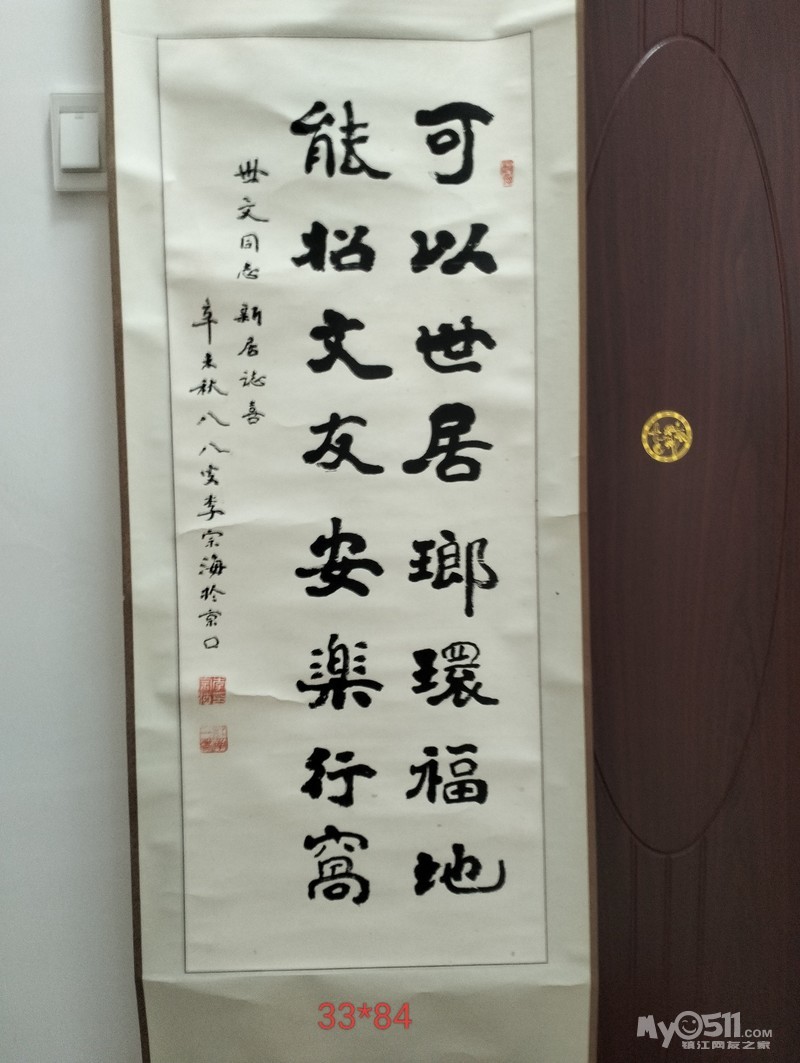 可以世居瑯環福地
能招文友安樂行窩
世文同志 新居誌喜
辛未秋八八叟李宗海於京口
33*84
My0511.com
镇江网友之家